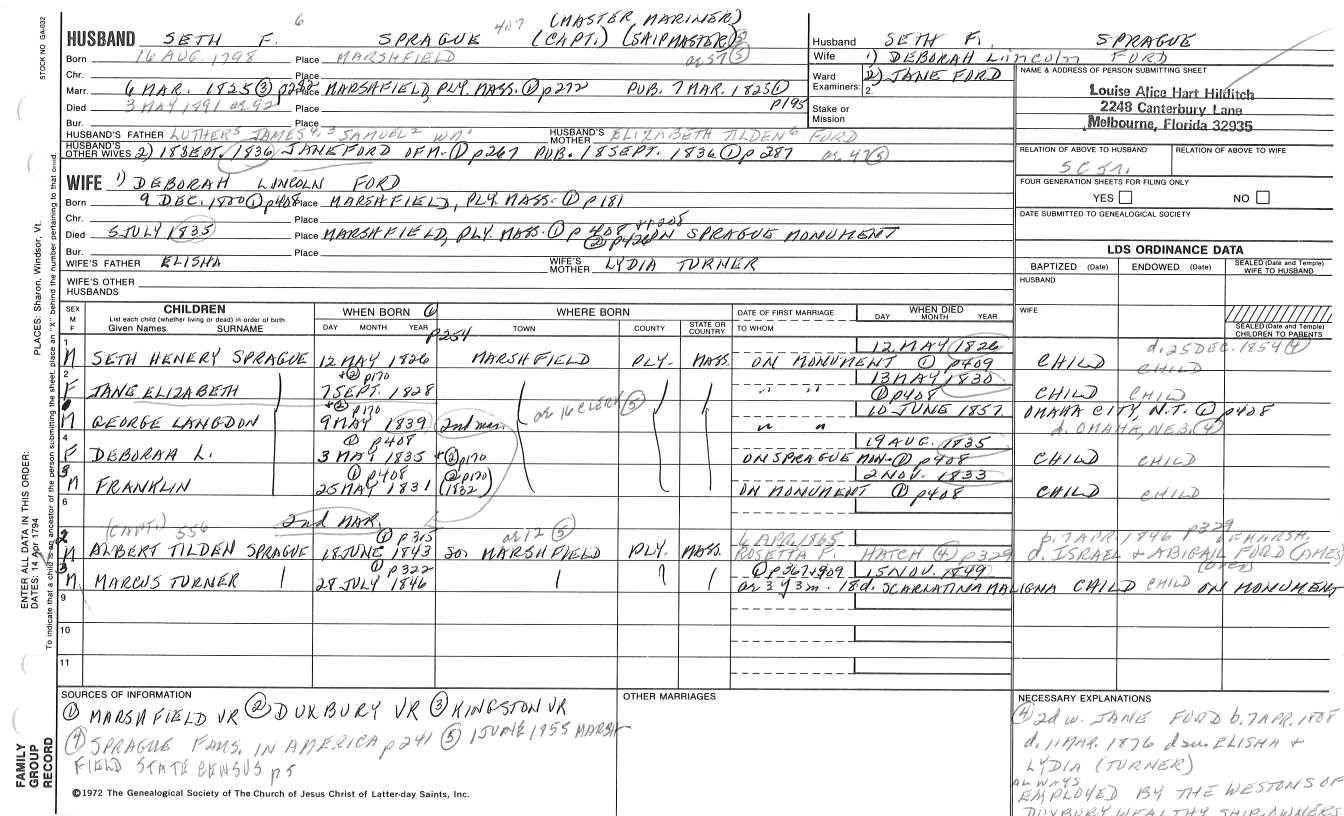 6 407 (MASTER MARINER)
HUSBAND SETH F. SPRAGUE (CAPT.) (SHIPMASTER) ⑤
Born 16 AUG. 1798 Place MARSHFIELD ae 57 ⑤
Chr. Place
Marr. 6 MAR. 1825 ③ p282 MARSHFIELD, PLY. MASS. ① p272 PUB. 7 MAR. 1825 ①
p195
Died 3 MAY 1891 ae 92 Place
Bur. Place
HUSBAND'S FATHER LUTHER⁵ JAMES⁴,³ SAMUEL² WM¹ HUSBAND'S MOTHER ELIZABETH TILDEN⁶ FORD
HUSBAND'S OTHER WIVES 2) 18 SEPT. 1836 JANE FORD OF M. ① p267 PUB. 18 SEPT. 1836 ① p287 ae 47 ⑤
WIFE 1) DEBORAH LINCOLN FORD
Born 9 DEC. 1800 ① p408 Place MARSHFIELD, PLY. MASS. ① p181
Chr. Place
Died 5 JULY 1835 Place MARSHFIELD, PLY. MASS. ① p 408 ② p426 ON SPRAGUE MONUMENT
Bur. Place
WIFE'S FATHER ELISHA WIFE'S MOTHER LYDIA TURNER
WIFE'S OTHER HUSBANDS
Husband SETH F. SPRAGUE
Wife 1) DEBORAH Lincoln FORD
Ward 2) JANE FORD
Examiners: 2.
Stake or Mission
NAME & ADDRESS OF PERSON SUBMITTING SHEET
Louise Alice Hart Hilditch
2248 Canterbury Lane
Melbourne, Florida 32935
RELATION OF ABOVE TO HUSBAND RELATION OF ABOVE TO WIFE
FOUR GENERATION SHEETS FOR FILING ONLY
YES NO
DATE SUBMITTED TO GENEALOGICAL SOCIETY
LDS ORDINANCE DATA
BAPTIZED (Date) ENDOWED (Date) SEALED (Date and Temple) WIFE TO HUSBAND
HUSBAND
WIFE
SEALED (Date and Temple) CHILDREN TO PARENTS
SEX M F CHILDREN WHEN BORN ⑥ WHERE BORN DATE OF FIRST MARRIAGE WHEN DIED
List each child (whether living or dead) in order of birth
Given Names SURNAME DAY MONTH YEAR TOWN COUNTY STATE OR COUNTRY TO WHOM DAY MONTH YEAR
p254
1 12 MAY 1826 d. 25 DEC. 1854 ④
M SETH HENERY SPRAGUE 12 MAY 1826 MARSHFIELD PLY. MASS. ON MONUMENT ① p409 CHILD CHILD
2 + ② p170 13 MAY 1830
F JANE ELIZABETH 7 SEPT. 1828 " " ① p408 CHILD CHILD
+ ② p170 ae 16 CLERK ⑤ 10 JUNE 1857 OMAHA CITY, N.T. ① p408
M GEORGE LANGDON 9 MAY 1839 2nd mar. " " d. OMAHA, NEB. ④
4 ① p408 19 AUG. 1835
F DEBORAH L. 3 MAY 1835 + ② p170 ON SPRAGUE MON. ① p408 CHILD CHILD
3 ① p408 ② p170 2 NOV. 1833
M FRANKLIN 25 MAY 1831 (1832) ON MONUMENT ① p408 CHILD CHILD
6
(CAPT.) 556 2nd MAR.
2 ① p315 ae 12 ⑤ 6 APR. 1865 b. 7 APR. 1846 p329 OF MARSH.
M ALBERT TILDEN SPRAGUE 18 JUNE 1843 SO. MARSHFIELD PLY. MASS. ROSETTA P. HATCH ④ p329 d. ISRAEL + ABIGAIL FORD (AMES)
(OVER)
3 ① p322 ① p367 + 409 15 NOV. 1849
M MARCUS TURNER 28 JULY 1846 ae 3 y 3 m. 18 d. SCARLATINA MALIGNA CHILD CHILD ON MONUMENT
9
10
11
SOURCES OF INFORMATION
① MARSHFIELD VR ② DUXBURY VR ③ KINGSTON VR
④ SPRAGUE FAMS. IN AMERICA p241 ⑤ 1 JUNE 1855 MARSH
FIELD STATE CENSUS p5
©1972 The Genealogical Society of The Church of Jesus Christ of Latter-day Saints, Inc.
OTHER MARRIAGES
NECESSARY EXPLANATIONS
④ 2d w. JANE FORD b. 7 APR. 1808
d. 11 MAR. 1876 dau. ELISHA +
LYDIA (TURNER)
ALWAYS
EMPLOYED BY THE WESTONS OF
DUXBURY WEALTHY SHIP OWNERS
STOCK NO. GA/032
PLACES: Sharon, Windsor, Vt.
ENTER ALL DATA IN THIS ORDER:
DATES: 14 Apr 1794
To indicate that a child is an ancestor of the person submitting the sheet, place an "X" behind the number pertaining to that child.
FAMILY GROUP RECORD